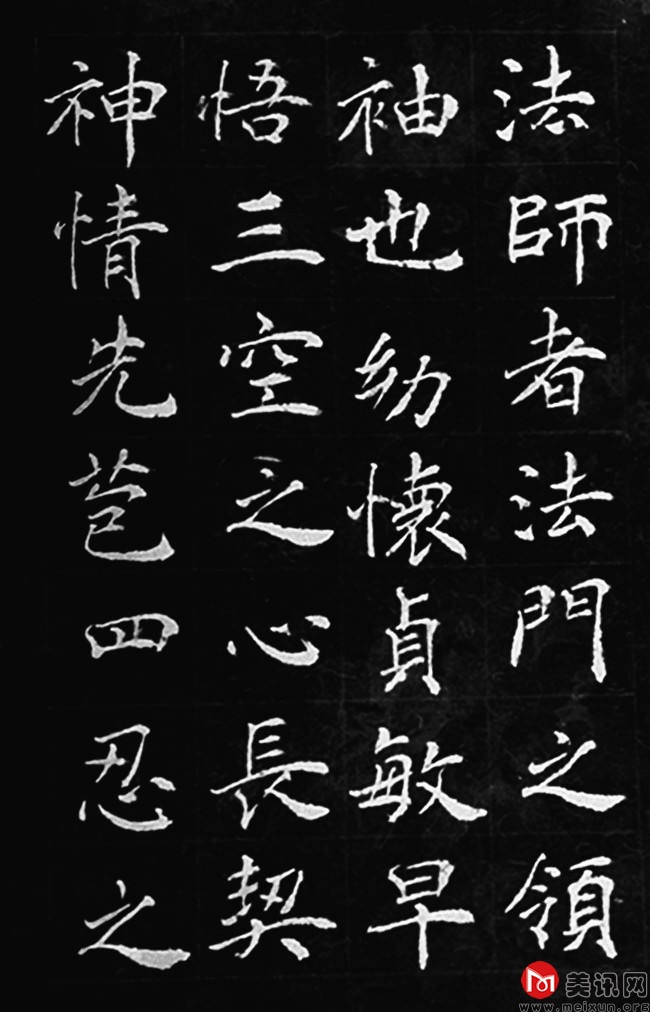 法師者法門之領
袖也幼懷貞敏早
悟三空之心長契
神情先苞四忍之
美讯网
www.meixun.org